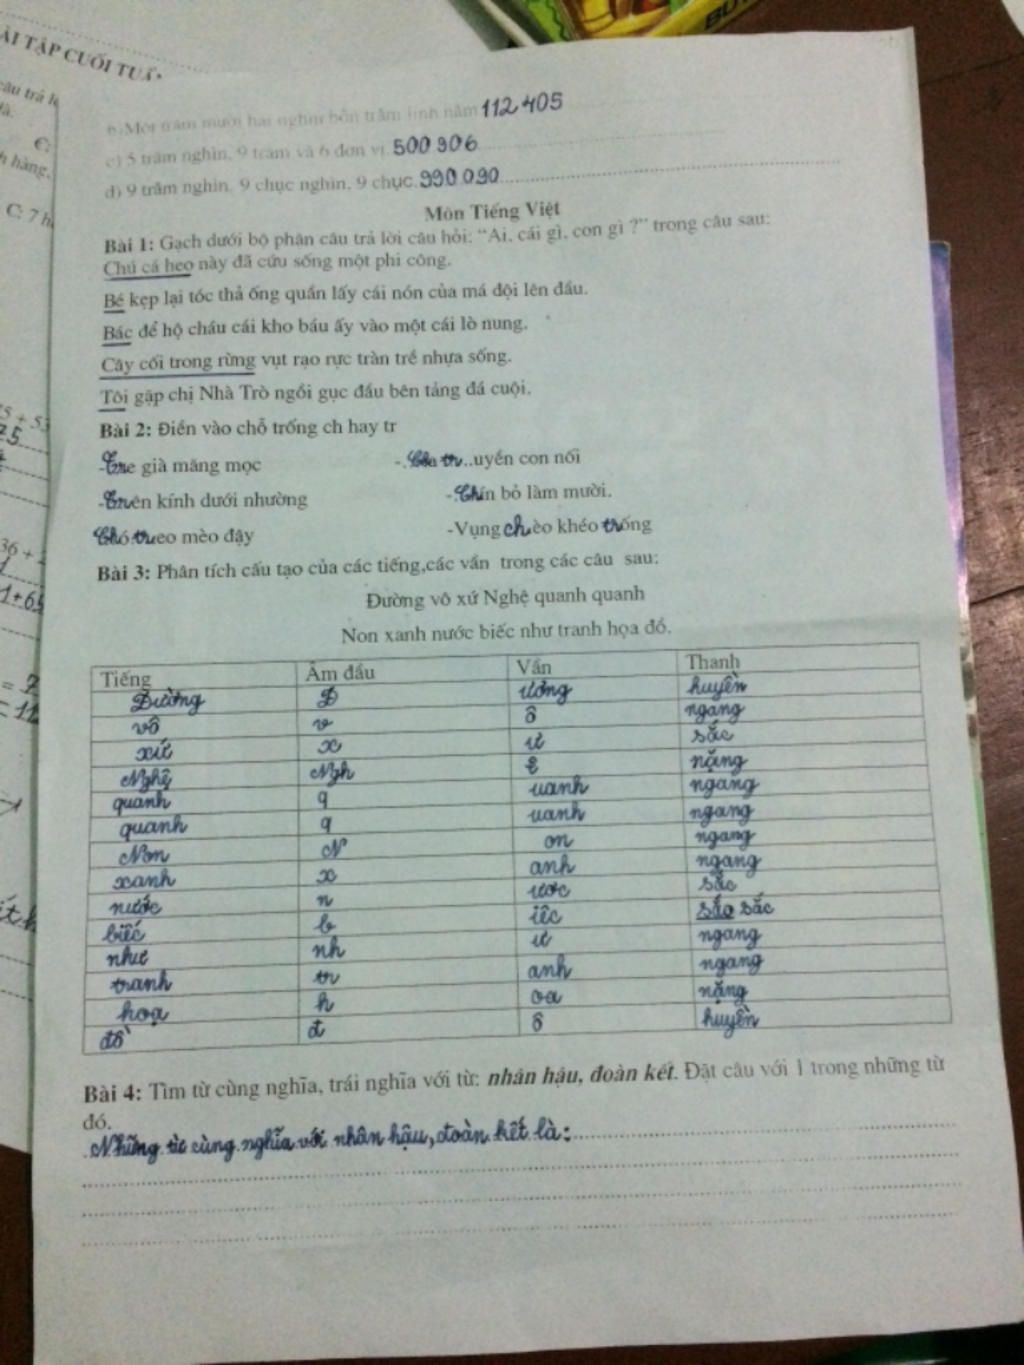 ÀI TẬP CUỐI TUẦ
câu trả l
C:
h hàng,
C: 7 h
b) Một trăm mười hai nghìn bốn trăm linh năm 112 405
c) 5 trăm nghìn, 9 trăm và 6 đơn vị. 500 906
d) 9 trăm nghìn, 9 chục nghìn, 9 chục. 990 090
Môn Tiếng Việt
Bài 1: Gạch dưới bộ phận câu trả lời câu hỏi: “Ai, cái gì, con gì ?” trong câu sau:
Chú cá heo này đã cứu sống một phi công.
Bé kẹp lại tóc thả ống quần lấy cái nón của má đội lên đầu.
Bác để hộ cháu cái kho báu ấy vào một cái lò nung.
Cây cối trong rừng vụt rạo rực tràn trề nhựa sống.
Tôi gặp chị Nhà Trò ngồi gục đầu bên tảng đá cuội.
Bài 2: Điền vào chỗ trống ch hay tr
-Tre già măng mọc - Cha tr..uyền con nối
-Trên kính dưới nhường -Chín bỏ làm mười.
Chó treo mèo đậy -Vụng chèo khéo trống
Bài 3: Phân tích cấu tạo của các tiếng,các vần trong các câu sau:
Đường vô xứ Nghệ quanh quanh
Non xanh nước biếc như tranh họa đồ.
Tiếng Âm đầu Vần Thanh
Đường Đ ương huyền
vô v ô ngang
xứ x ư sắc
Nghệ Ngh ê nặng
quanh q uanh ngang
quanh q uanh ngang
Non N on ngang
xanh x anh ngang
nước n ươc sắc
biếc b iêc sắc sắc
như nh ư ngang
tranh tr anh ngang
hoạ h oa nặng
đồ đ ô huyền
Bài 4: Tìm từ cùng nghĩa, trái nghĩa với từ: nhân hậu, đoàn kết. Đặt câu với 1 trong những từ
đó.
Những từ cùng nghĩa với nhân hậu, đoàn kết là: